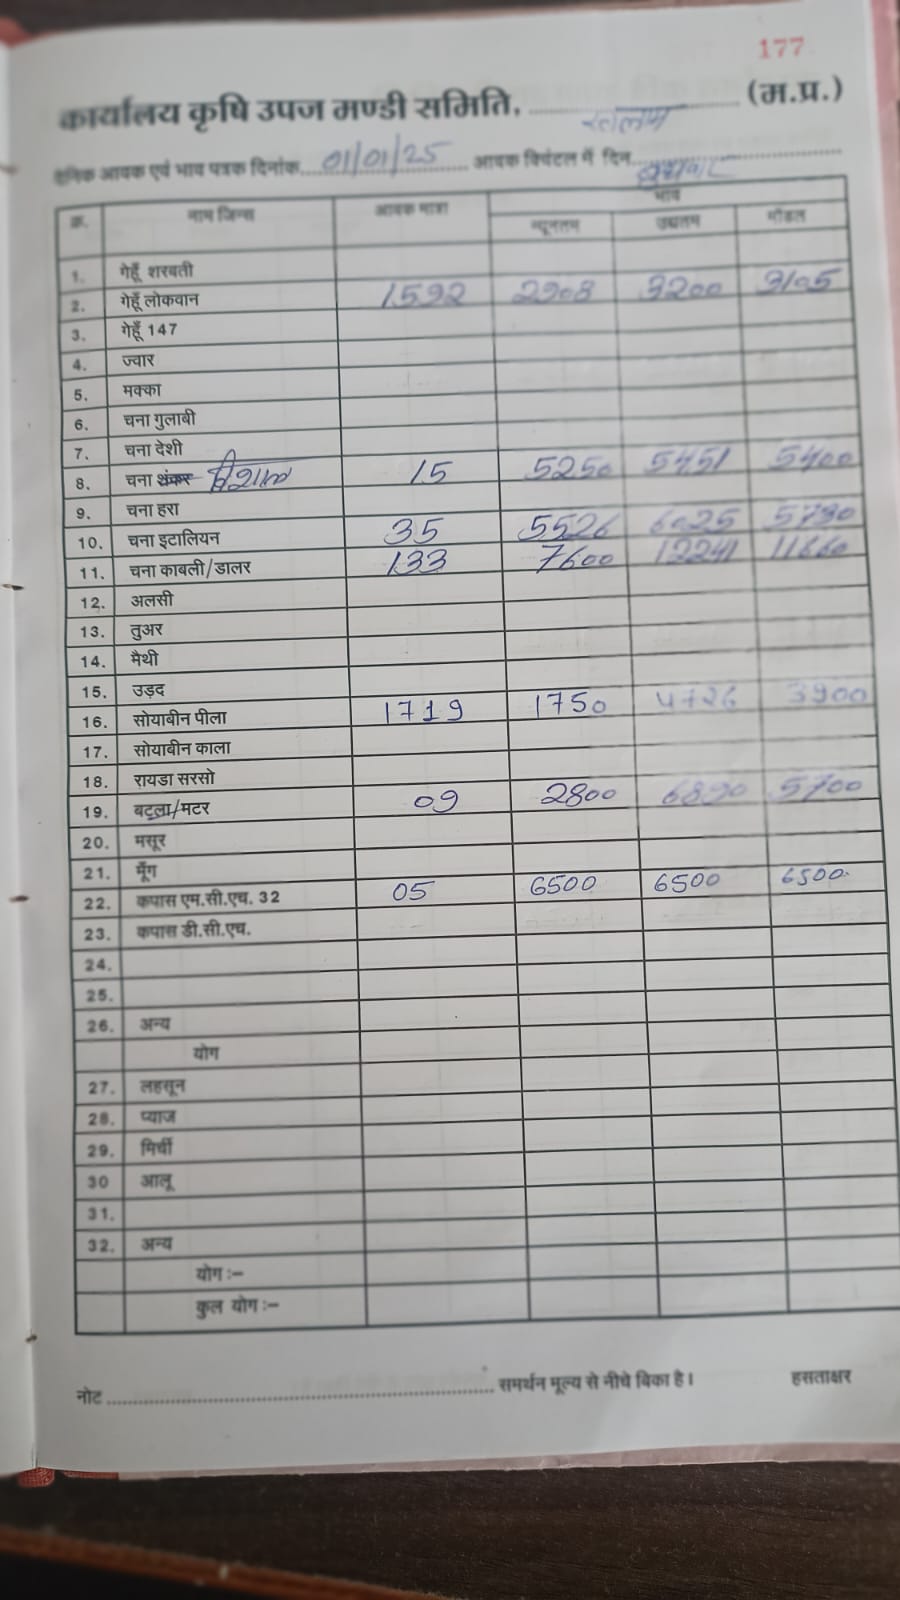 177
कार्यालय कृषि उपज मण्डी समिति, रतलाम (म.प्र.)
दैनिक आवक एवं भाव पत्रक दिनांक 01/01/25 आवक क्विंटल में दिन बुधवार
क्र. नाम जिन्स आवक मात्रा भाव
न्यूनतम उच्चतम मॉडल
1. गेहूँ शरबती
2. गेहूँ लोकवान 1592 2908 3200 3105
3. गेहूँ 147
4. ज्वार
5. मक्का
6. चना गुलाबी
7. चना देशी
8. चना शंकर विशाल 15 5250 5451 5400
9. चना हरा
10. चना इटालियन 35 5526 6025 5790
11. चना काबली/डालर 133 7600 12241 11660
12. अलसी
13. तुअर
14. मैथी
15. उड़द
16. सोयाबीन पीला 1719 1750 4726 3900
17. सोयाबीन काला
18. रायडा सरसो
19. बटला/मटर 09 2800 5700
20. मसूर
21. मूँग
22. कपास एम.सी.एच. 32 05 6500 6500 6500
23. कपास डी.सी.एच.
24.
25.
26. अन्य
योग
27. लहसून
28. प्याज
29. मिर्ची
30 आलू
31.
32. अन्य
योग :–
कुल योग :–
नोट ........ समर्थन मूल्य से नीचे बिका है। हसताक्षर